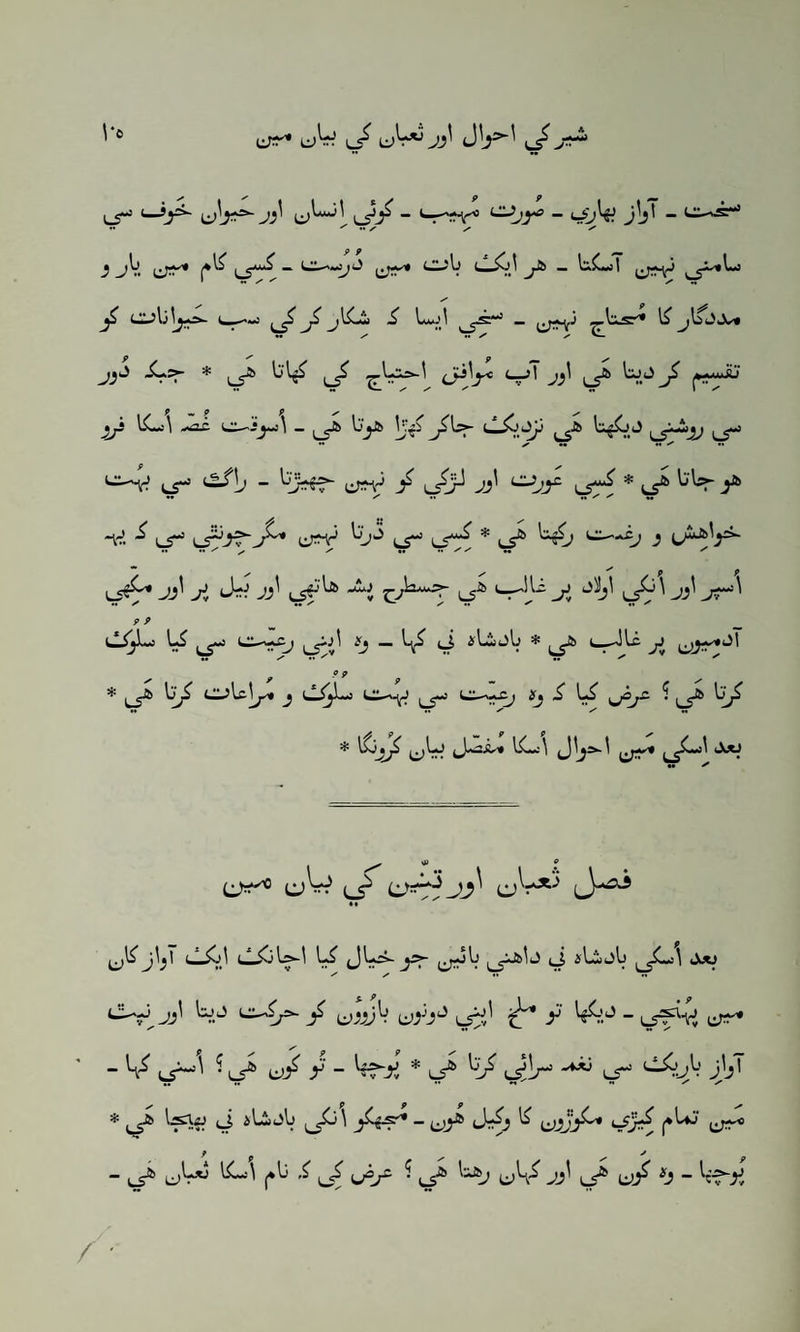 شیر کي احوال اور ثعبان کي بیان مین ١٠٥
سخت - آواز بهاري - صورت مهیب - کوئي انسان اور حیوان خوف سي
سامهني نهین آسکتا - هر ایک بات مین درست - کسي کام مین یار و
مددگار کا محتاج نهین - سخي ایسا که شکار کر کي سب حیوانات کو
تقسیم کر دیتا هی اور آپ موافق احتیاج کي کهاتا هی * جبکه دور
سي روشني دیکهتا هی نزدیک جاکر کهڑا هوتا هی - اسوقت غصه اسکا فرو
هو جاتا هی * کسي عورت اور لڑکي کو نهین چهیڑتا - راگ سي بهت
خواهش و رغبت رکهتا هی * کسي سي ڈرتا نهین مگر چیونٹي سي که یهه
اسپر اور اسکي اولاد پر غالب هی جسطرح پشه هاتهي اور بیل پر اور مکهي
آدمیون پر غالب هی * بادشاه ني کها - وه اپني رعیت سي کیا سلوک
کرتا هی ؟ عرض کیا که وه رعیت سي بهت سلوک و مراعات کرتا هی *
بعد اسکي مین احوال اسکا مفصل بیان کرونگا *
فصل ثعبان اور تنین کي بیان مین
بعد اسکي بادشاه ني داهني بائین جو خیال کیا اچانک ایک آواز کان
مین پهنچي - دیکها تو ملخ اپني دونون بازوون کو حرکت دیتا اور بهت
آواز باریک سي نغمه سرائي کرتا هی * پوچها - تو کون هی ؟ اسني کها -
مین تمام کیڑي مکوڑون کا وکیل هون - مجهکو انکي بادشاه ني بهیجا هی *
پوچها - وه کون هی اور کهان رهتا هی ؟ عرض کي که نام اسکا ثعبان هی -